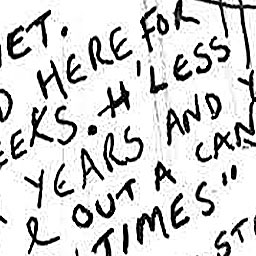 ET.
D HERE FOR
EEKS. H'LESS
YEARS AND Y
& OUT A CAN
"TIMES"
ST